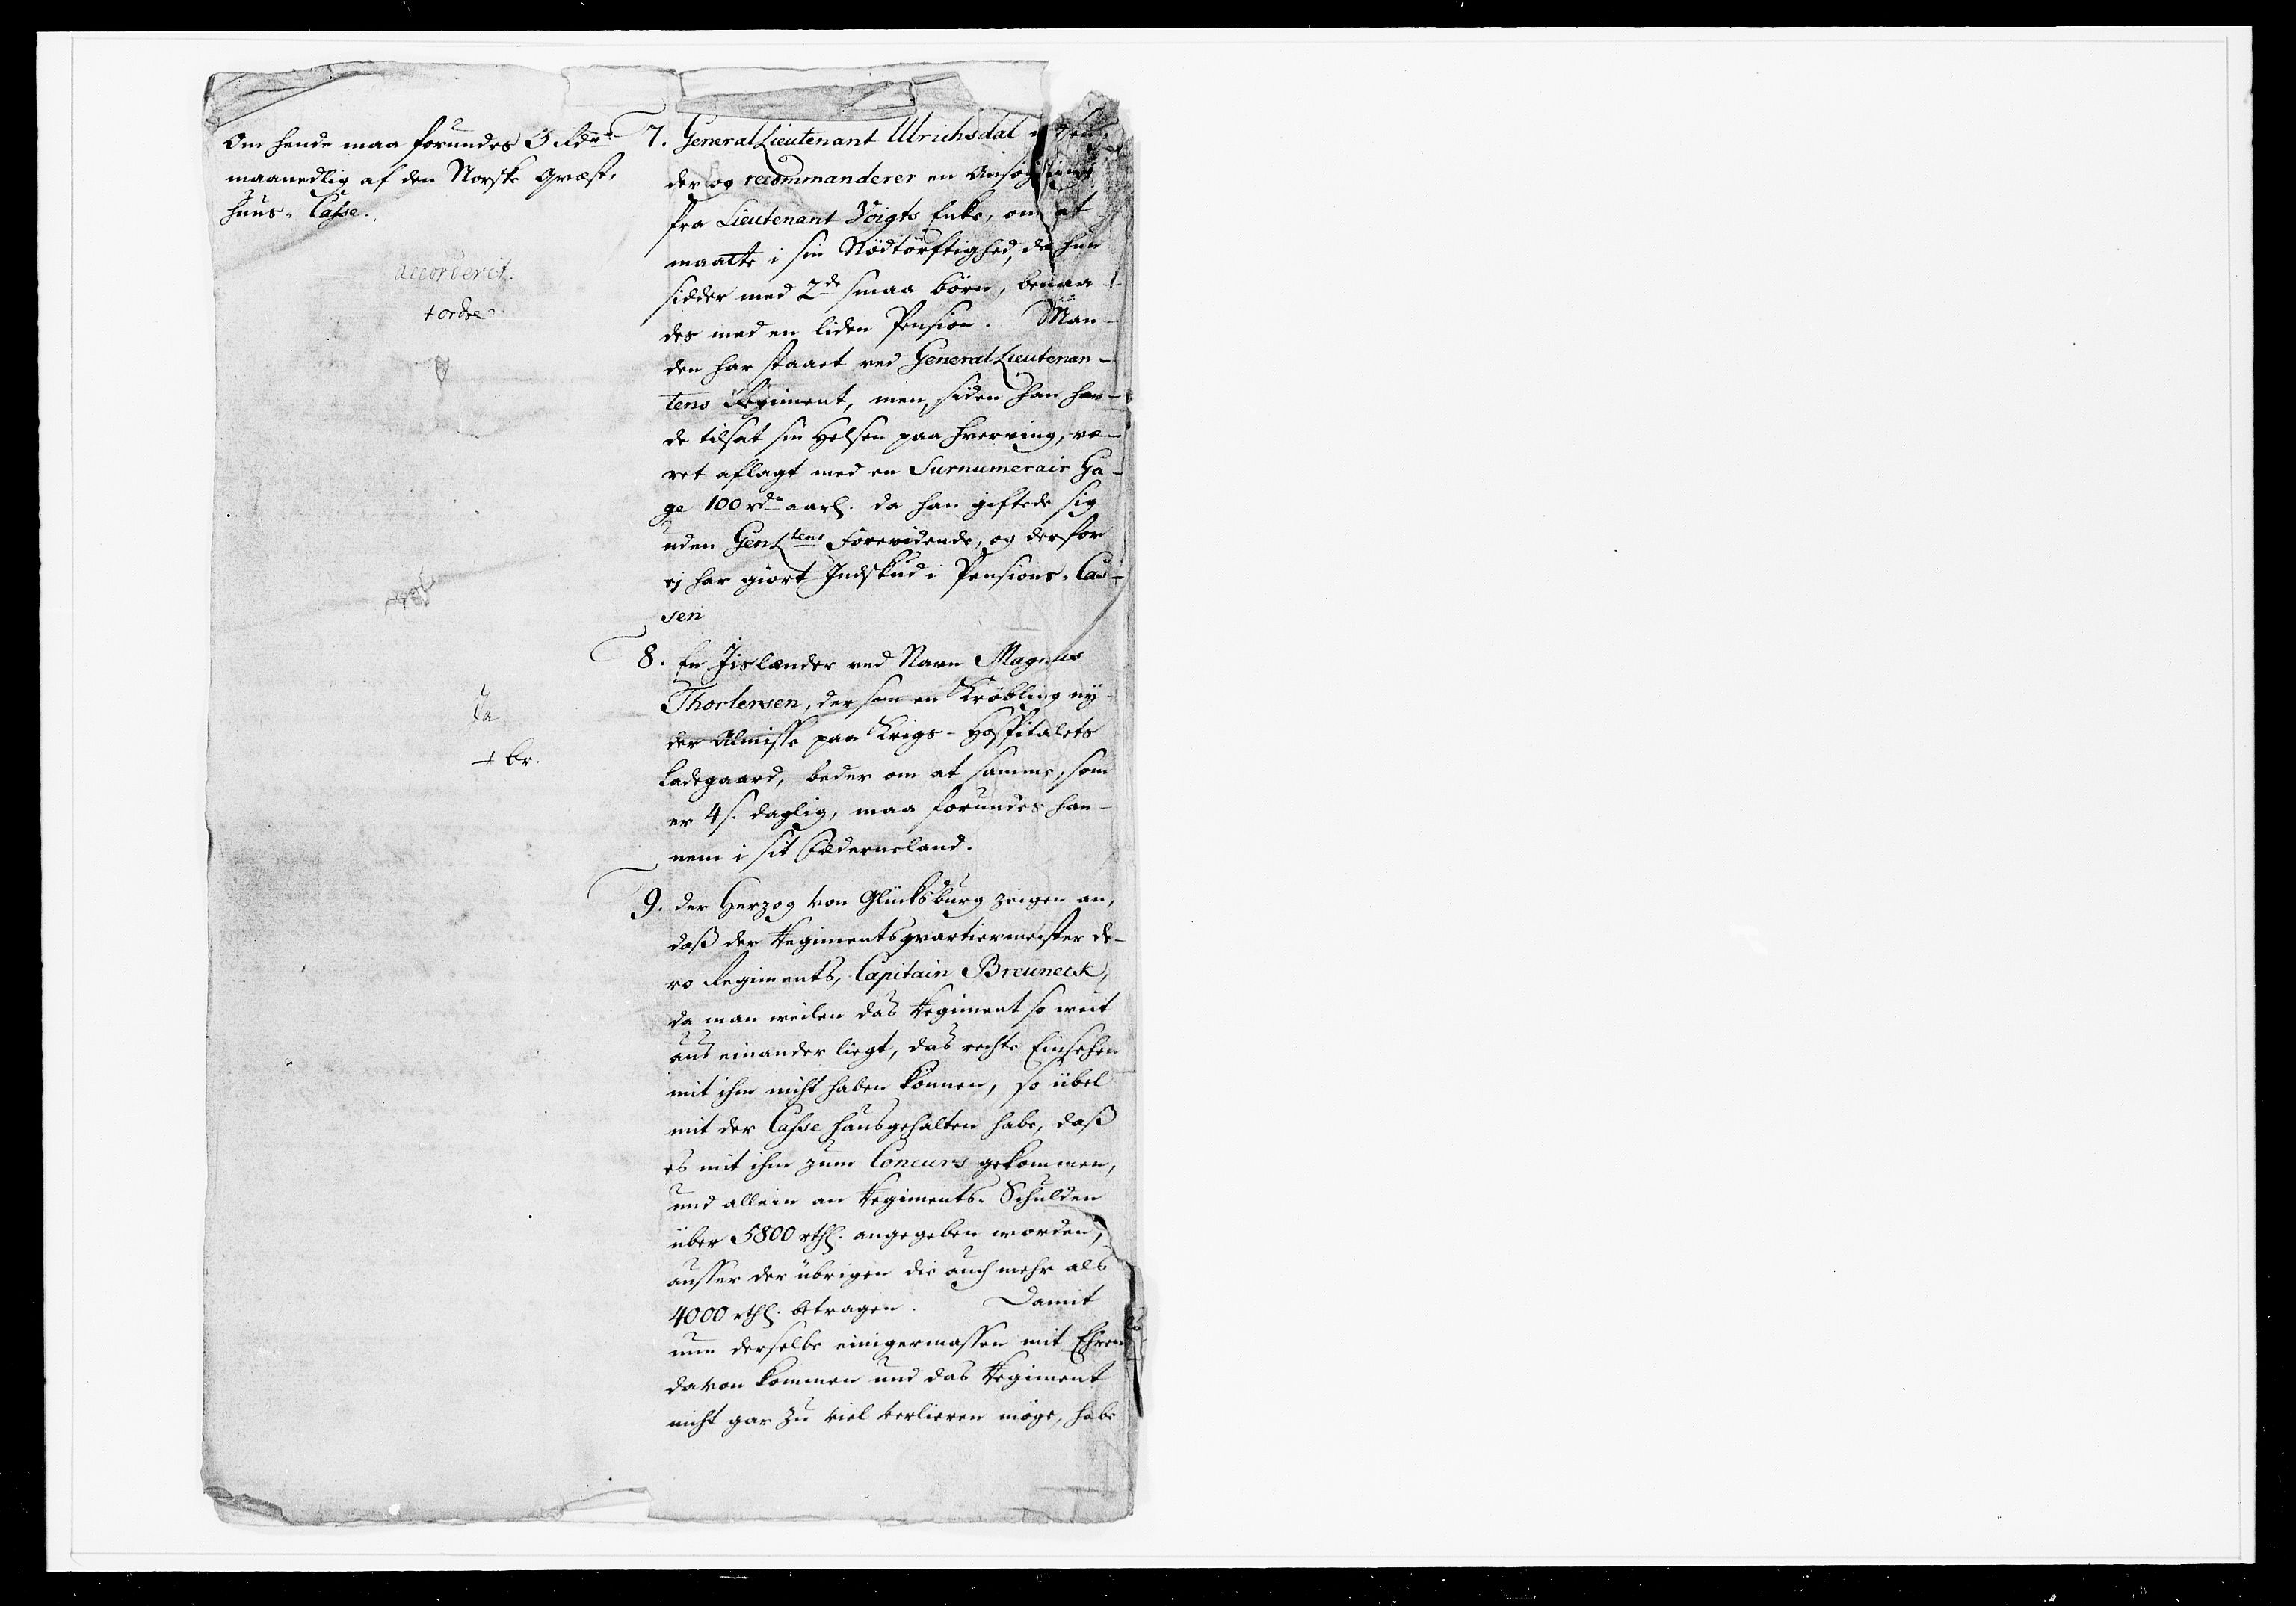 Om hende maa forundes 3 Rdr
maanedlig af den Norske Qvæst-
huus-Casse.
accorderet.
+ ordre
7. General Lieutenant Ulrichsdal
der og recommanderer en Ansøgning
fra Lieutenant Voigts Enke, om at
maatte i sin Nödtörftighed, da hun
sidder med 2de smaa börn, benaa-
des med en liden Pension. Man-
den har staaet ved General Lieutenan-
tens Regiment, men, siden han hav-
de tilsat sin Helsen paa hverving, væ-
ret aflagt med en Surnumerair Ga-
ge 100 rdr aarl. da han giftede sig
uden GenLtens Forevidende, og derfor
ej har giort Indskud i Pensions-Cas-
sen
8. En Jislænder ved Navn Magnus
Thorlensen, der som en Kröbling ny-
der Almisse paa Krigs-Hospitalets
Ladegaard, beder om at samme, som
er 4 s. daglig, maa forundes han-
nem i sit Fæderneland.
Ja
+ br.
9. der Herzog von Glücksburg zeigen an,
daß der Regimentsqvartiermeister de-
ro Regiments, Capitain Breuneck,
da man weilen das Regiment so weit
aus einander liegt, das rechte Einsehen
mit ihm nicht haben können, so übel
mit der Casse hausgehalten habe, daß
es mit ihm zum Concurs gekommen,
und allein an Regiments-Schulden
über 5800 rthl. angegeben worden,
ausser der übrigen die auch mehr als
4000 rthl. betragen. Damit
nun derselbe einigermassen mit Ehren
davon kommen und das Regiment
nicht gar zu viel verlieren möge, habe